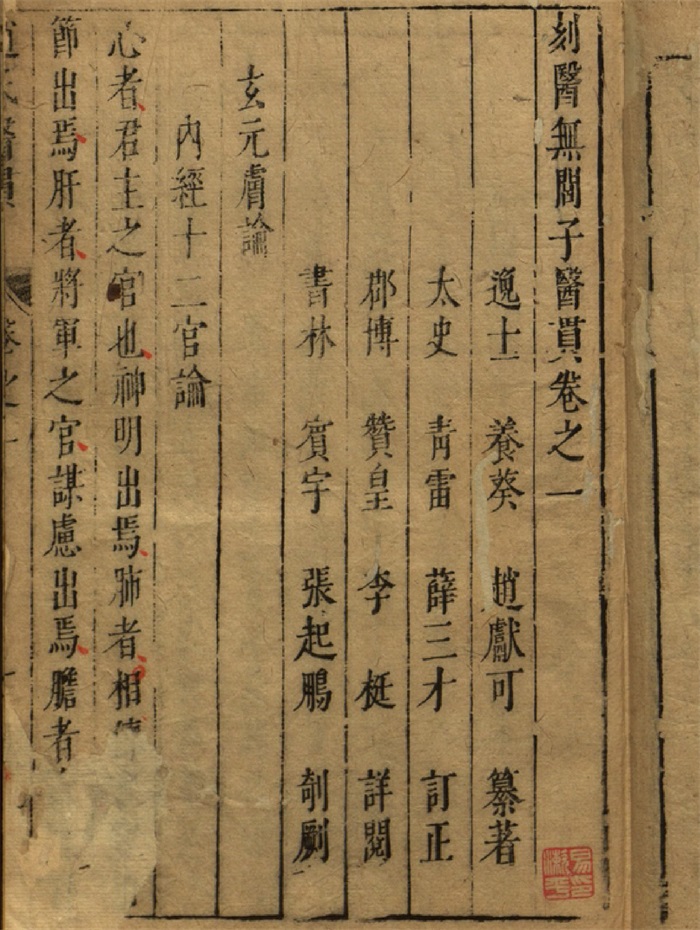 刻醫無閭子醫貫卷之一
逸士 養葵 趙獻可 纂著
太史 青雷 薛三才 訂正
郡博 贊皇 李梃 詳閱
書林 賓宇 張起鵬 刳劂
玄元膚論
內經十二官論
心者君主之官也神明出焉肺者相傅
節出焉肝者將軍之官謀慮出焉膽者
趙氏醫貫 卷之一